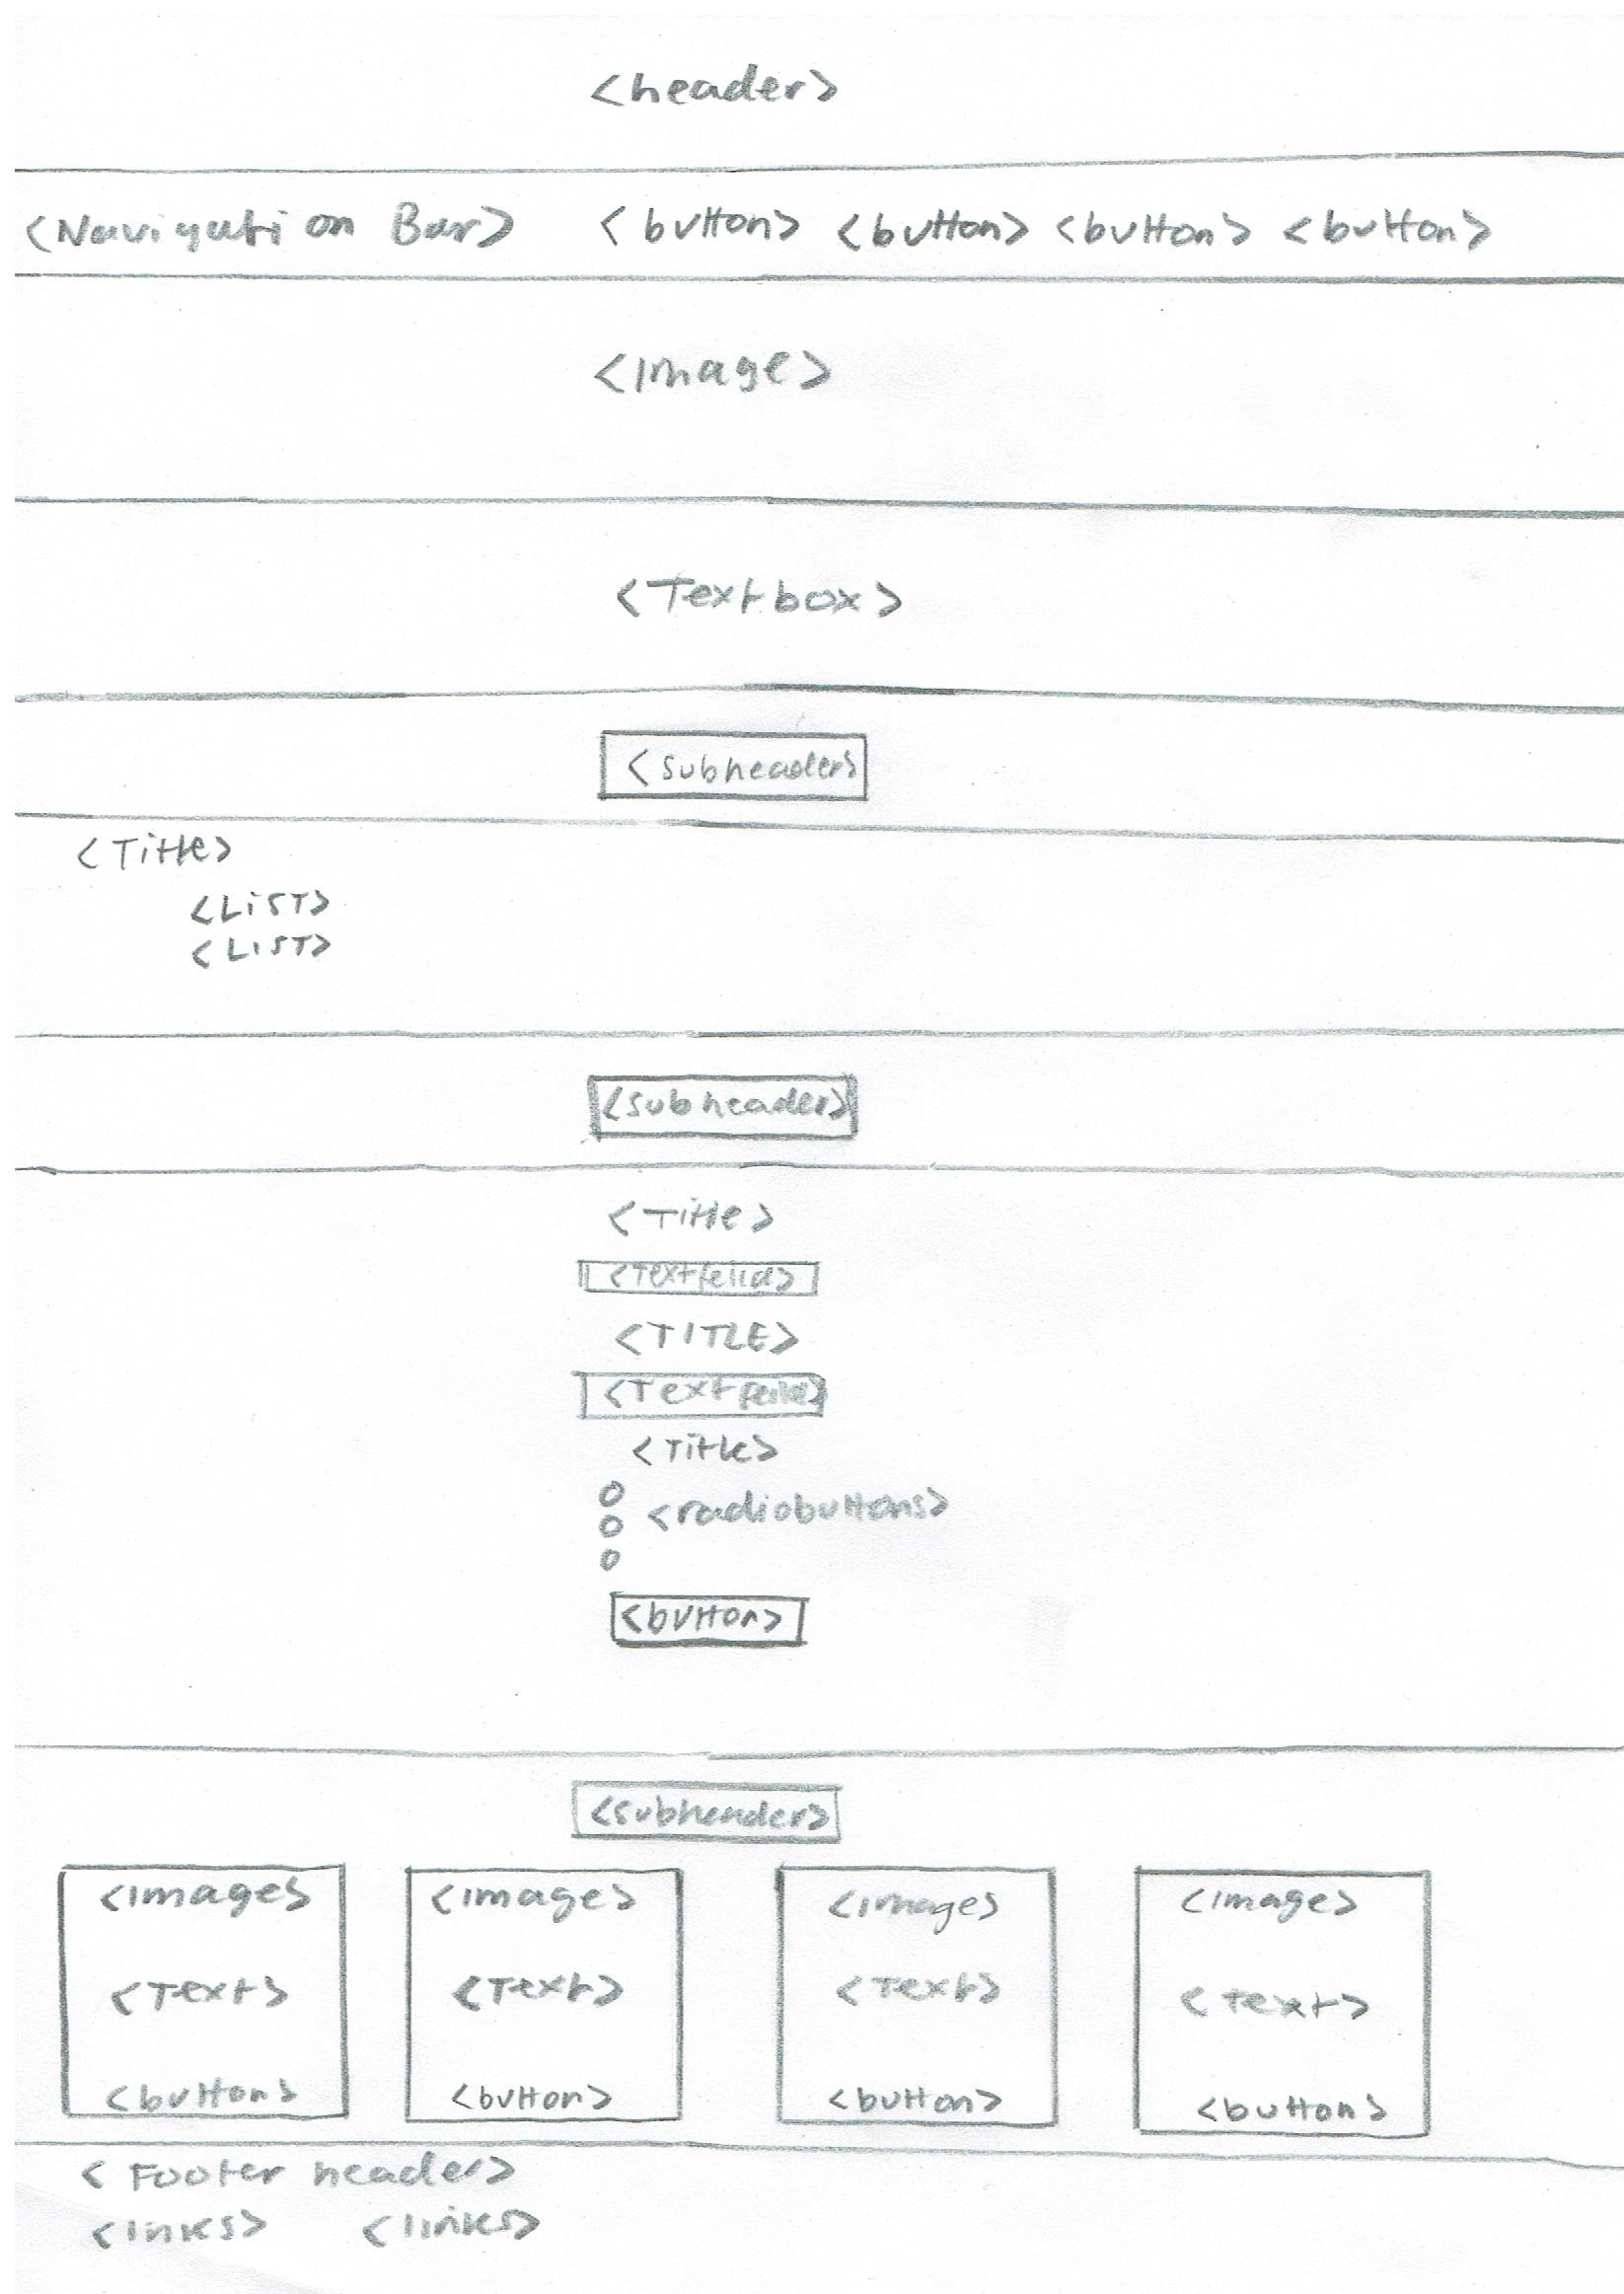 <header>
<Navigation Bar> <button> <button> <button> <button>
<Image>
<Textbox>
<subheader>
<Title>
<LiST>
<LIST>
<subheader>
<Title>
<Textfeild>
<TITLE>
<Textfeild>
<Title>
<radiobuttons>
<button>
<subheader>
<image> <image> <image> <image>
<Text> <Text> <Text> <text>
<button> <button> <button> <button>
<Footer header>
<links> <links>